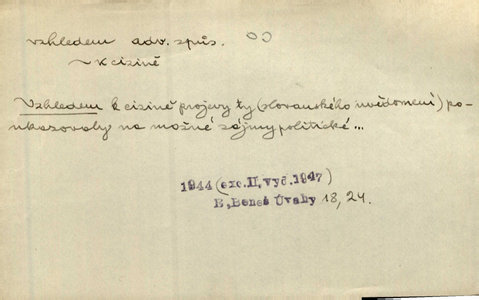 vzhledem adv. způs.
~ k cizině
Vzhledem k cizině projevy ty (slovanského uvědomení) po-
ukazovaly na možné zájmy politické ...
1944 (exc. II, vyč. 1947)
E. Beneš Úvahy 18, 24.